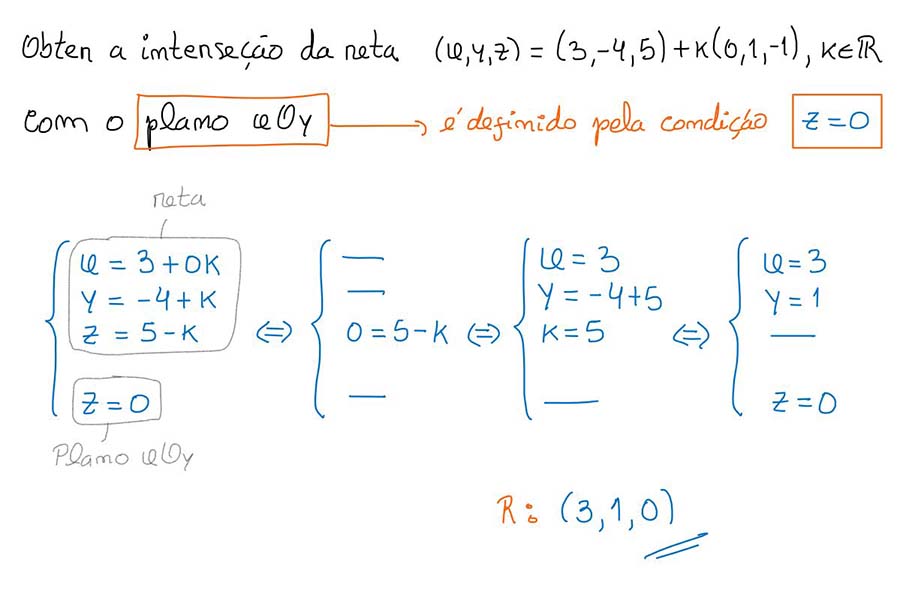 Obter a interseção da reta (x,y,z) = (3,-4,5) + k(0,1,-1), k∈ℝ
com o plano xOy → é definido pela condição z = 0
reta
{ x = 3 + 0k ⇔ { — ⇔ { x = 3 ⇔ { x = 3
y = -4 + k — y = -4 + 5 y = 1
z = 5 - k 0 = 5 - k k = 5 —
z = 0 — — z = 0
Plano xOy
R: (3,1,0)